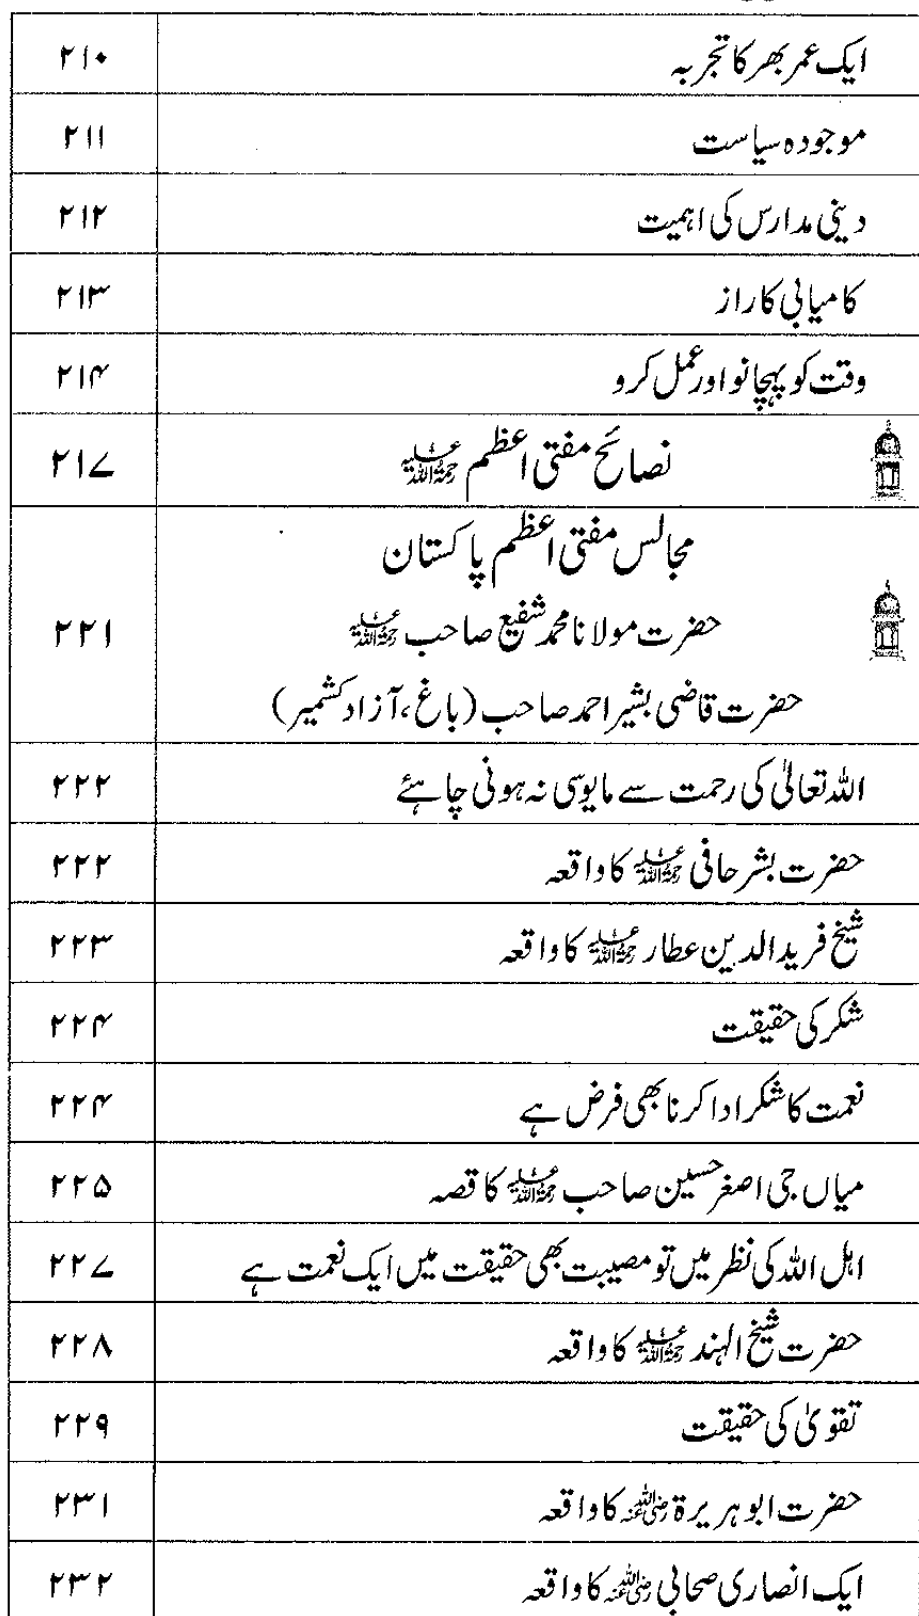 ایک عمر بھر کا تجربہ ۲۱۰
موجودہ سیاست ۲۱۱
دینی مدارس کی اہمیت ۲۱۲
کامیابی کا راز ۲۱۳
وقت کو پہچانو اور عمل کرو ۲۱۴
نصائح مفتی اعظم رحمۃ اللہ علیہ ۲۱۷
مجالس مفتی اعظم پاکستان
حضرت مولانا محمد شفیع صاحب رحمۃ اللہ علیہ ۲۲۱
حضرت قاضی بشیر احمد صاحب (باغ، آزاد کشمیر)
اللہ تعالیٰ کی رحمت سے مایوسی نہ ہونی چاہئے ۲۲۲
حضرت بشر حافی رحمۃ اللہ علیہ کا واقعہ ۲۲۲
شیخ فرید الدین عطار رحمۃ اللہ علیہ کا واقعہ ۲۲۳
شکر کی حقیقت ۲۲۴
نعمت کا شکر ادا کرنا بھی فرض ہے ۲۲۴
میاں جی اصغر حسین صاحب رحمۃ اللہ علیہ کا قصہ ۲۲۵
اہل اللہ کی نظر میں تو مصیبت بھی حقیقت میں ایک نعمت ہے ۲۲۷
حضرت شیخ الہند رحمۃ اللہ علیہ کا واقعہ ۲۲۸
تقویٰ کی حقیقت ۲۲۹
حضرت ابو ہریرۃ رضی اللہ عنہ کا واقعہ ۲۳۱
ایک انصاری صحابی رضی اللہ عنہ کا واقعہ ۲۳۲